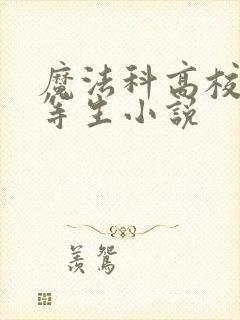 魔法科高校
等生小説
羡鸳